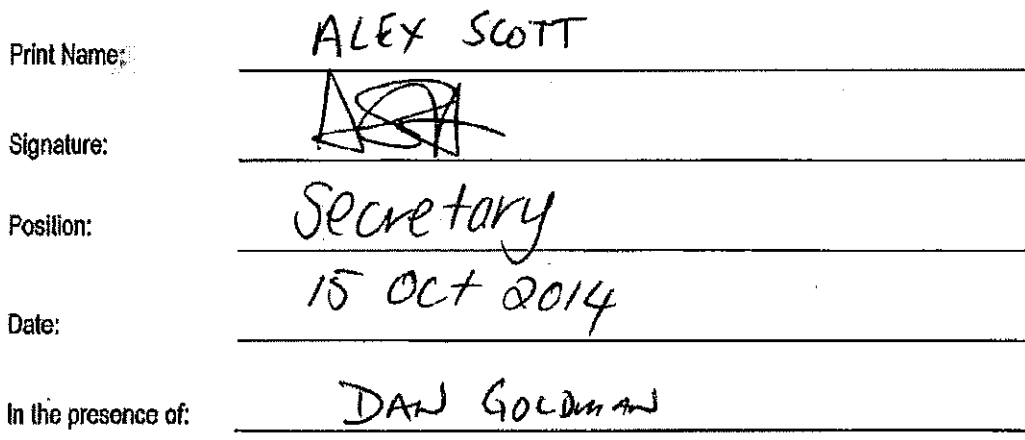 Print Name: ALEX SCOTT
Signature:
Position: Secretary
Date: 15 Oct 2014
In the presence of: DAN GOLDMAN